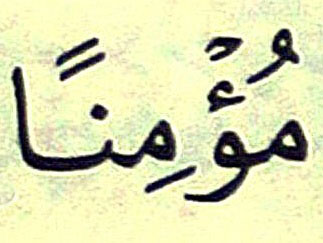 مُؤْمِنًا